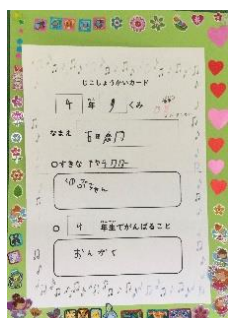 じこしょうかいカード
4年 くみ
なまえ
○すきな キャラクター
ゆめちゃん
○ 4年生でがんばること
おんがく